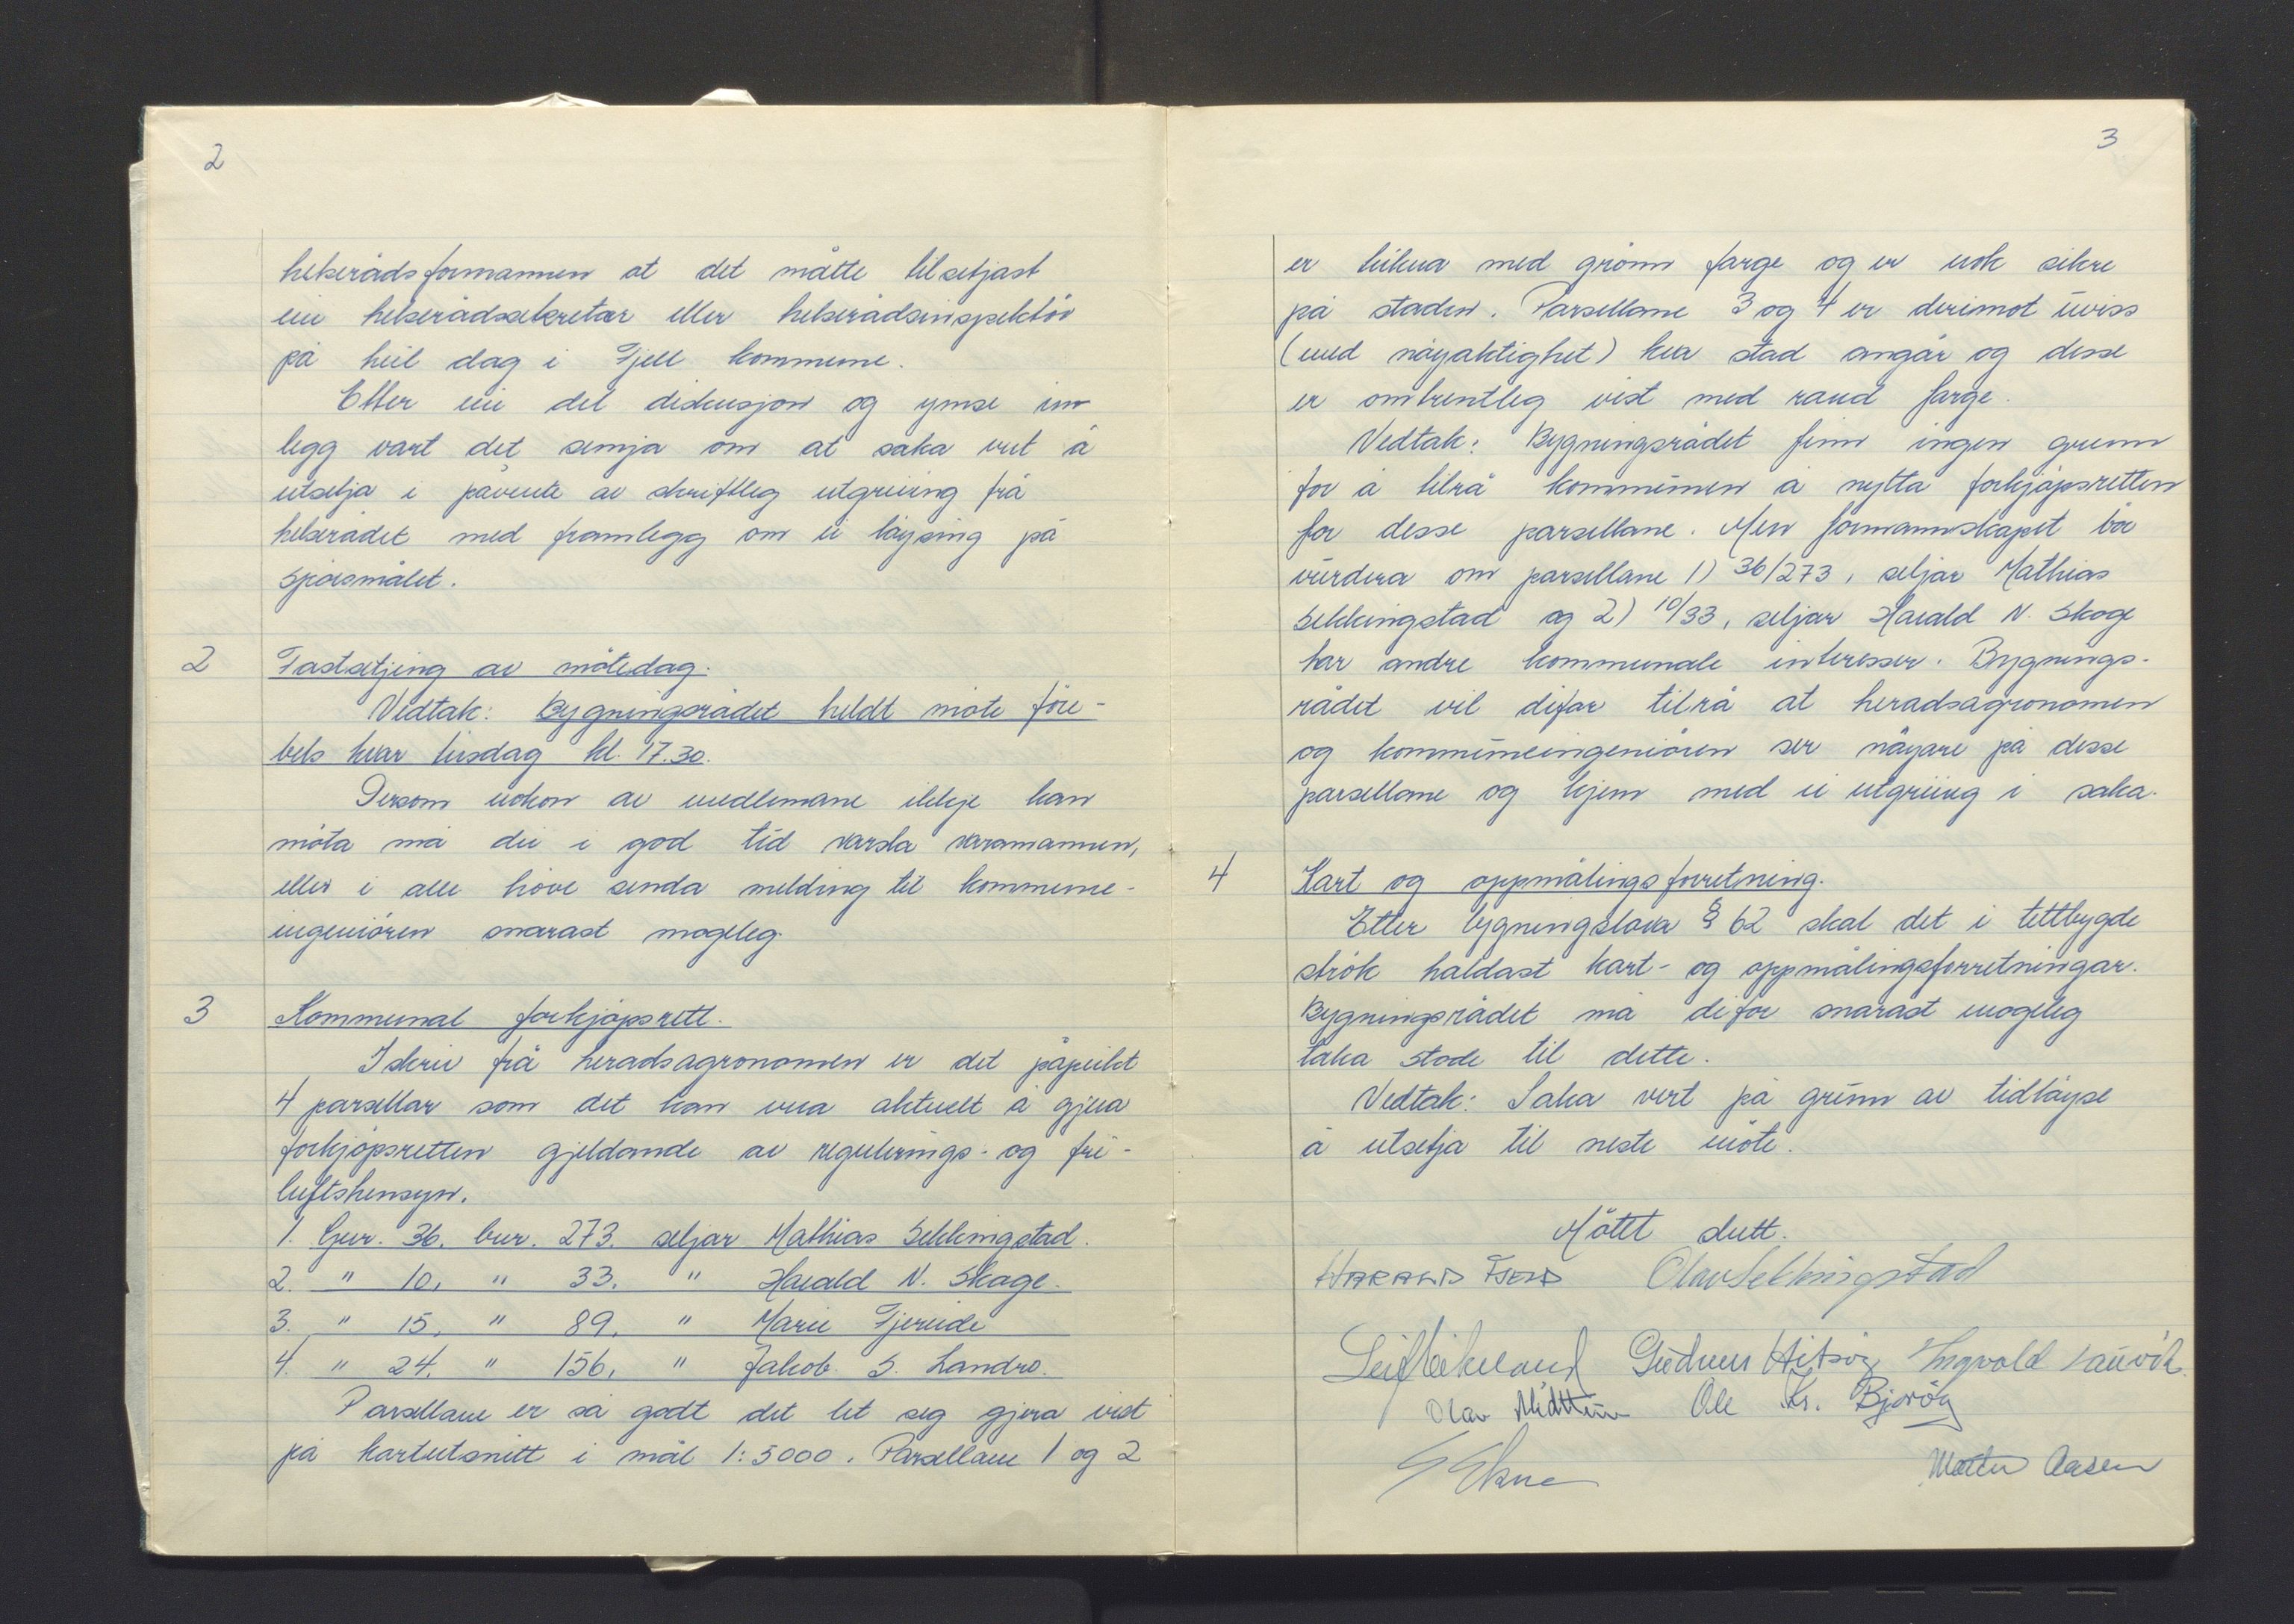 2
helserådsformannen at det måtte tilsetjast
ein helserådssekretær eller helserådsinspektör
på heil dag i Fjell kommune.
Etter ein del diskusjon og ymse inn
legg vart det semja om at saka vert å
utsetja i påvente av skriftleg utgreiing frå
helserådet med framlegg om ei löysing på
spörsmålet.
2 Fastsetjing av mötedag.
Vedtak: Bygningsrådet heldt möte före-
bels kvar tirsdag kl. 17.30.
Dersom nokon av medlemane ikkje kan
möta må dei i god tid varsla varamannen,
eller i alle höve senda melding til kommune-
ingeniören snarast mogeleg.
3 Kommunal forkjöpsrett.
I skriv frå heradsagronomen er det påpeikt
4 parsellar som det kan vera aktuelt å gjera
forkjöpsretten gjeldande av regulerings- og fri-
luftshensyn.
1. Gnr. 36. bnr. 273. seljar Mathias Sekkingstad.
2. " 10, " 33. " Harald N. Skage.
3. " 15, " 89, " Marie Fjereide
4. " 24, " 156, " Jakob S. Landro.
Parsellane er så godt det let seg gjera vist
på kartutsnitt i mål 1:5000. Parsellane 1 og 2
3
er teikna med grönn farge og er nok sikre
på staden. Parsellane 3 og 4 er derimot uviss
(med nöyaktighet) kva stad angår og desse
er omtrentleg vist med raud farge.
Vedtak: Bygningsrådet finn ingen grunn
for å tilrå kommunen å nytta forkjöpsretten
for desse parsellane. Men formannskapet bör
vurdera om parsellane 1) 36/273, seljar Mathias
Sekkingstad og 2) 10/33, seljar Harald N. Skage
har andre kommunale interesser. Bygnings-
rådet vil difor tilrå at heradsagronomen
og kommuneingeniören ser nöyare på desse
parsellane og kjem med ei utgreiing i saka.
4 Kart og oppmålingsforretning.
Etter bygningslova § 62 skal det i tettbygde
strök haldast kart- og oppmålingsforretningar.
Bygningsrådet må difor snarast mogeleg
taka stode til dette.
Vedtak: Saka vert på grunn av tidlöyse
å utsetja til neste möte.
Mötet slutt.
Harald Olav Sekkingstad
Leif Gudrun Hitsöy Ingvald
Olav Midttun Ole Kr. Bjoröy
Aasen